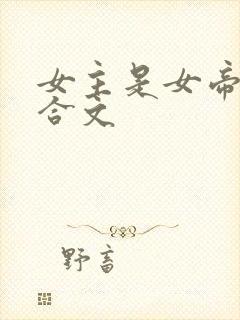 女主是女帝
合文
野畜